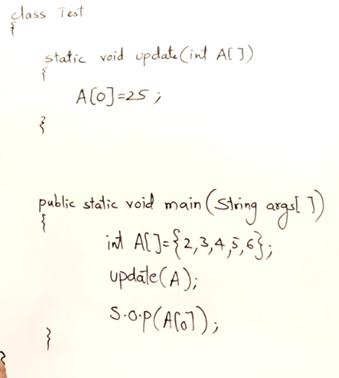 class Test
{
static void update(int A[])
{
A[0]=25;
}
public static void main(String args[])
{
int A[]={2,3,4,5,6};
update(A);
S.O.P(A[0]);
}
}